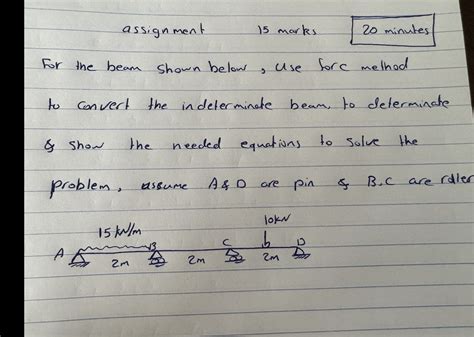 assignment 15 marks 20 minutes
For the beam shown below, use forc method
to convert the indeterminate beam, to determinate
& show the needed equations to solve the
problem, assume A & D are pin & B.C are roller
10kN
15 kN/m
A B C b D
2m 2m 2m